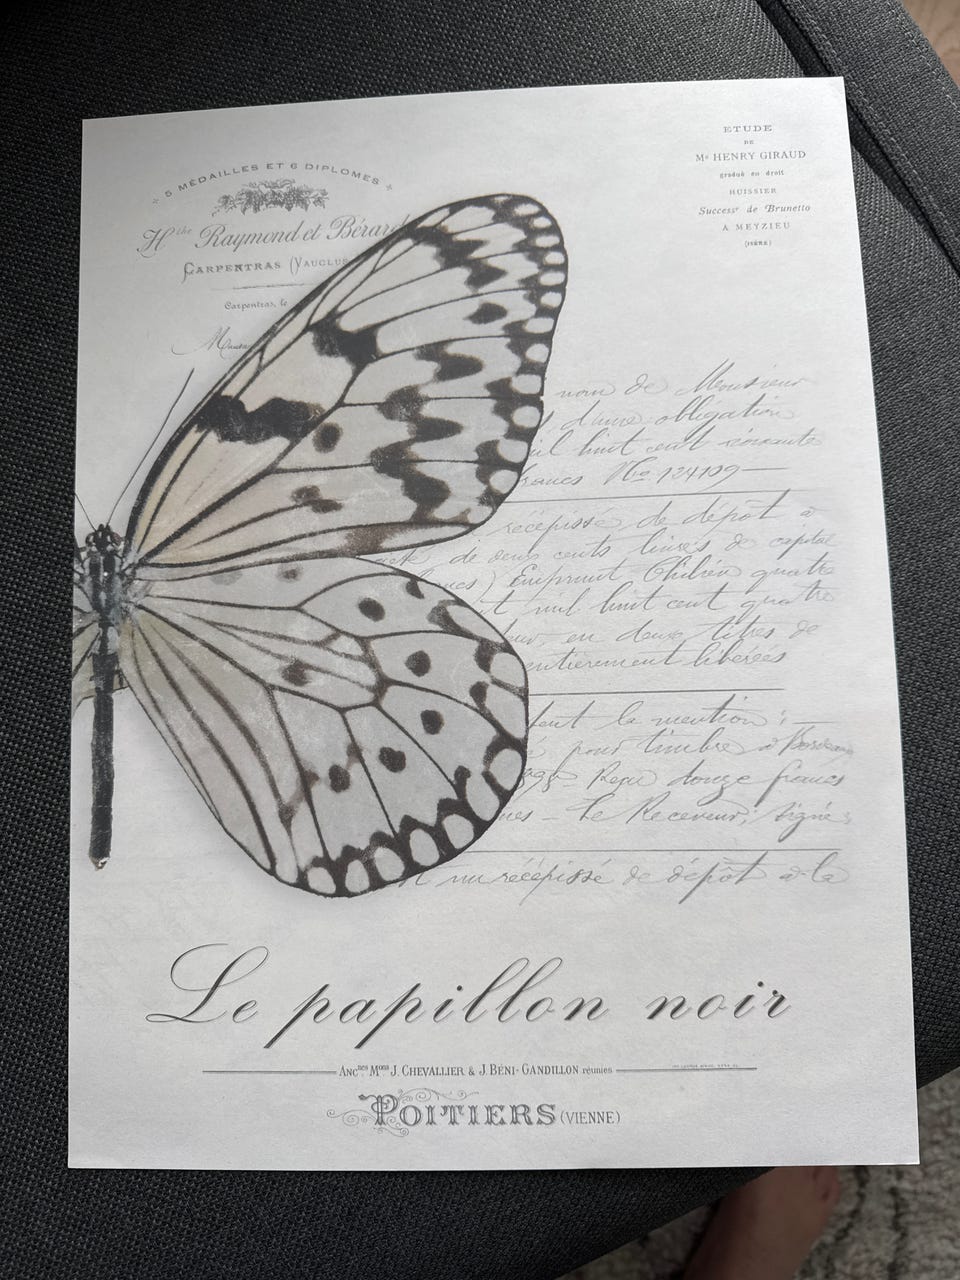 5 MÉDAILLES ET 6 DIPLOMES
Hthe Raymond et Bérard
CARPENTRAS (VAUCLUS
Carpentras, le
ETUDE
DE
Me HENRY GIRAUD
gradué en droit
HUISSIER
Successr de Brunetto
A MEYZIEU
(ISÈRE)
nom de Monsieur
d'une obligation
huit cent
francs No. 124109
récépissé de dépôt a
de deux cents livres de capital
Emprunt Chilien quatre
t mil huit cent quatre
en deux titres de
entièrement libérées
la mention :
pour timbre a Bordeaux
Reçu douze francs
Le Receveur, signé
récépissé de dépôt a la
Le papillon noir
ANCnes Mons J. CHEVALLIER & J. BÉNI-GANDILLON réunies
POITIERS (VIENNE)